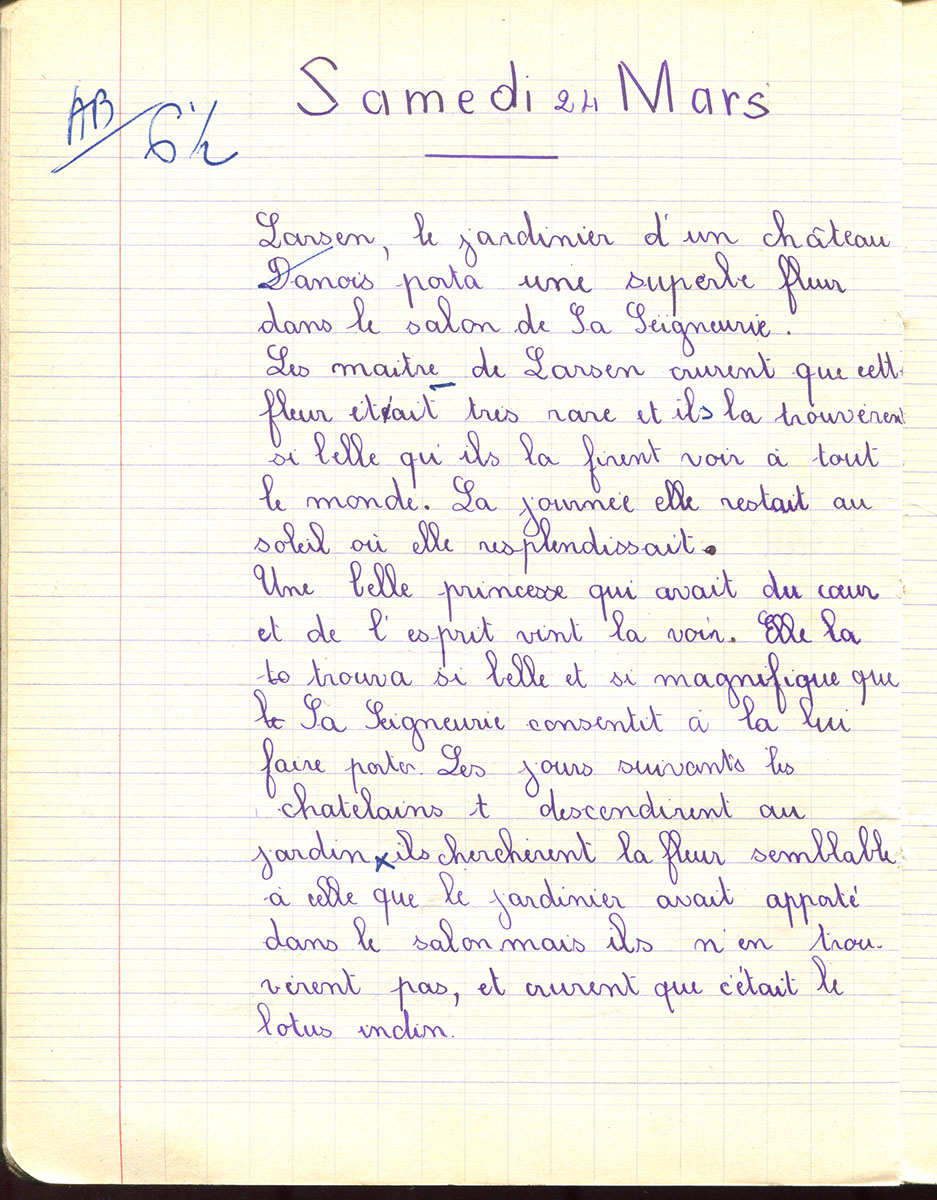 Samedi 24 Mars
AB
6 1/2
Larsen, le jardinier d'un château
Danois porta une superbe fleur
dans le salon de Sa Seigneurie.
Les maitre de Larsen crurent que cett
fleur était très rare et ils la trouvèrent
si belle qu'ils la firent voir à tout
le monde. La journée elle restait au
soleil où elle resplendissait.
Une belle princesse qui avait du cœur
et de l'esprit vint la voir. Elle la
to trouva si belle et si magnifique que
le Sa Seigneurie consentit à la lui
faire porter. Les jours suivants les
chatelains t descendirent au
jardin x ils cherchèrent la fleur semblable
à celle que le jardinier avait apporté
dans le salon mais ils n'en trou-
vèrent pas, et crurent que c'était le
lotus indin.